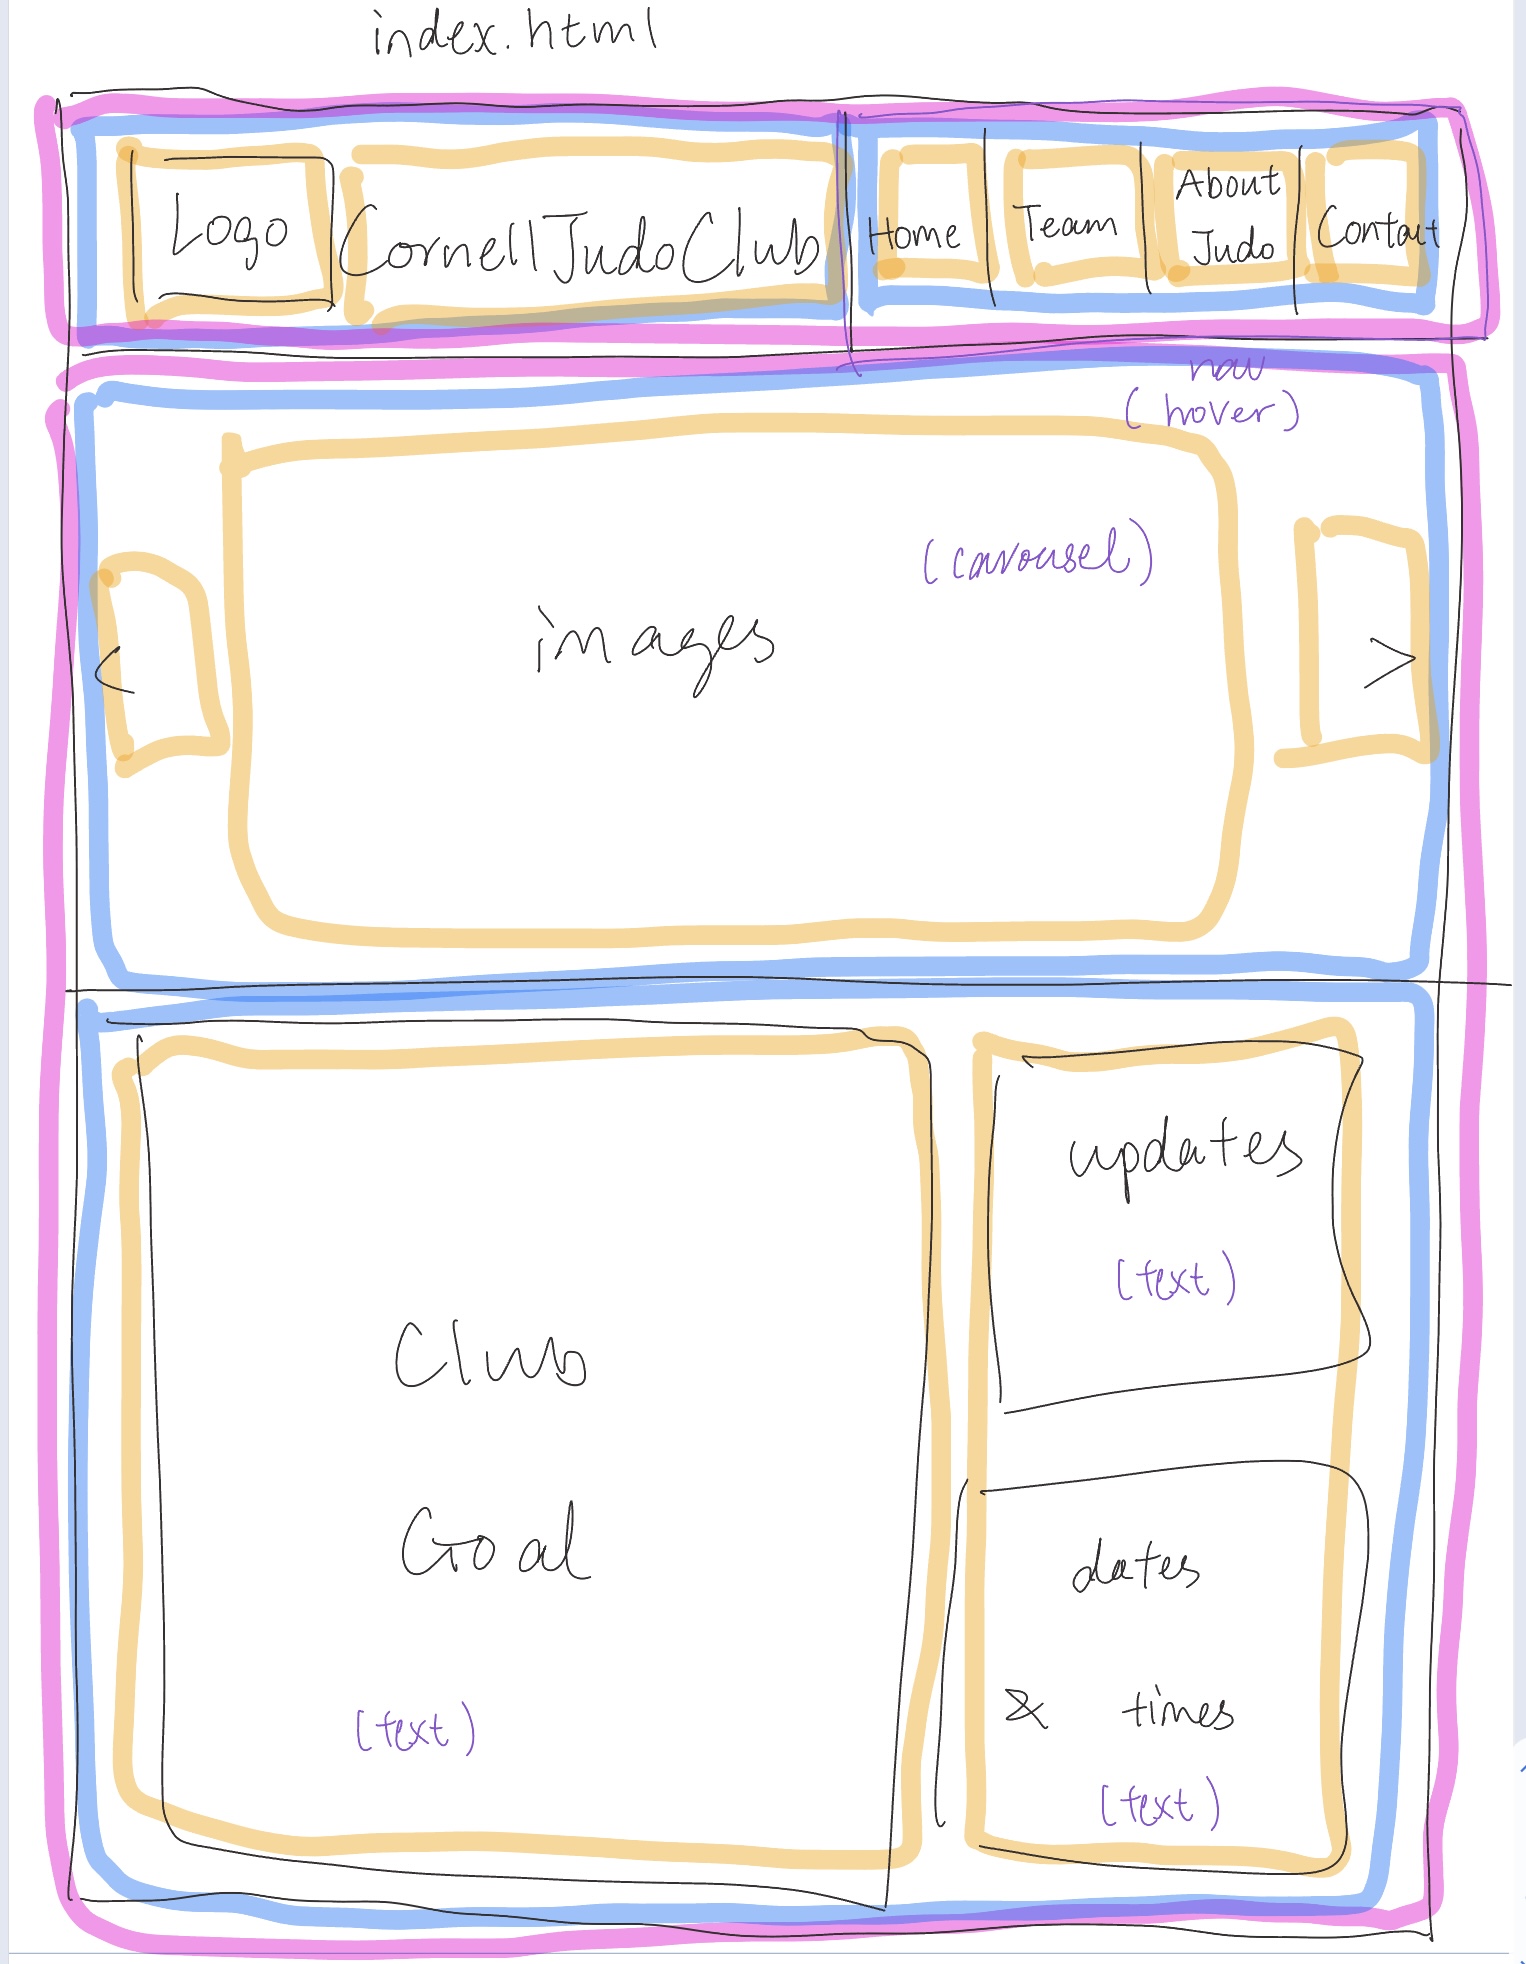 index.html
Logo
CornellJudoClub
Home
Team
About
Judo
Contact
nav
(hover)
(carousel)
images
<
>
updates
(text)
Club
Goal
(text)
dates
& times
(text)